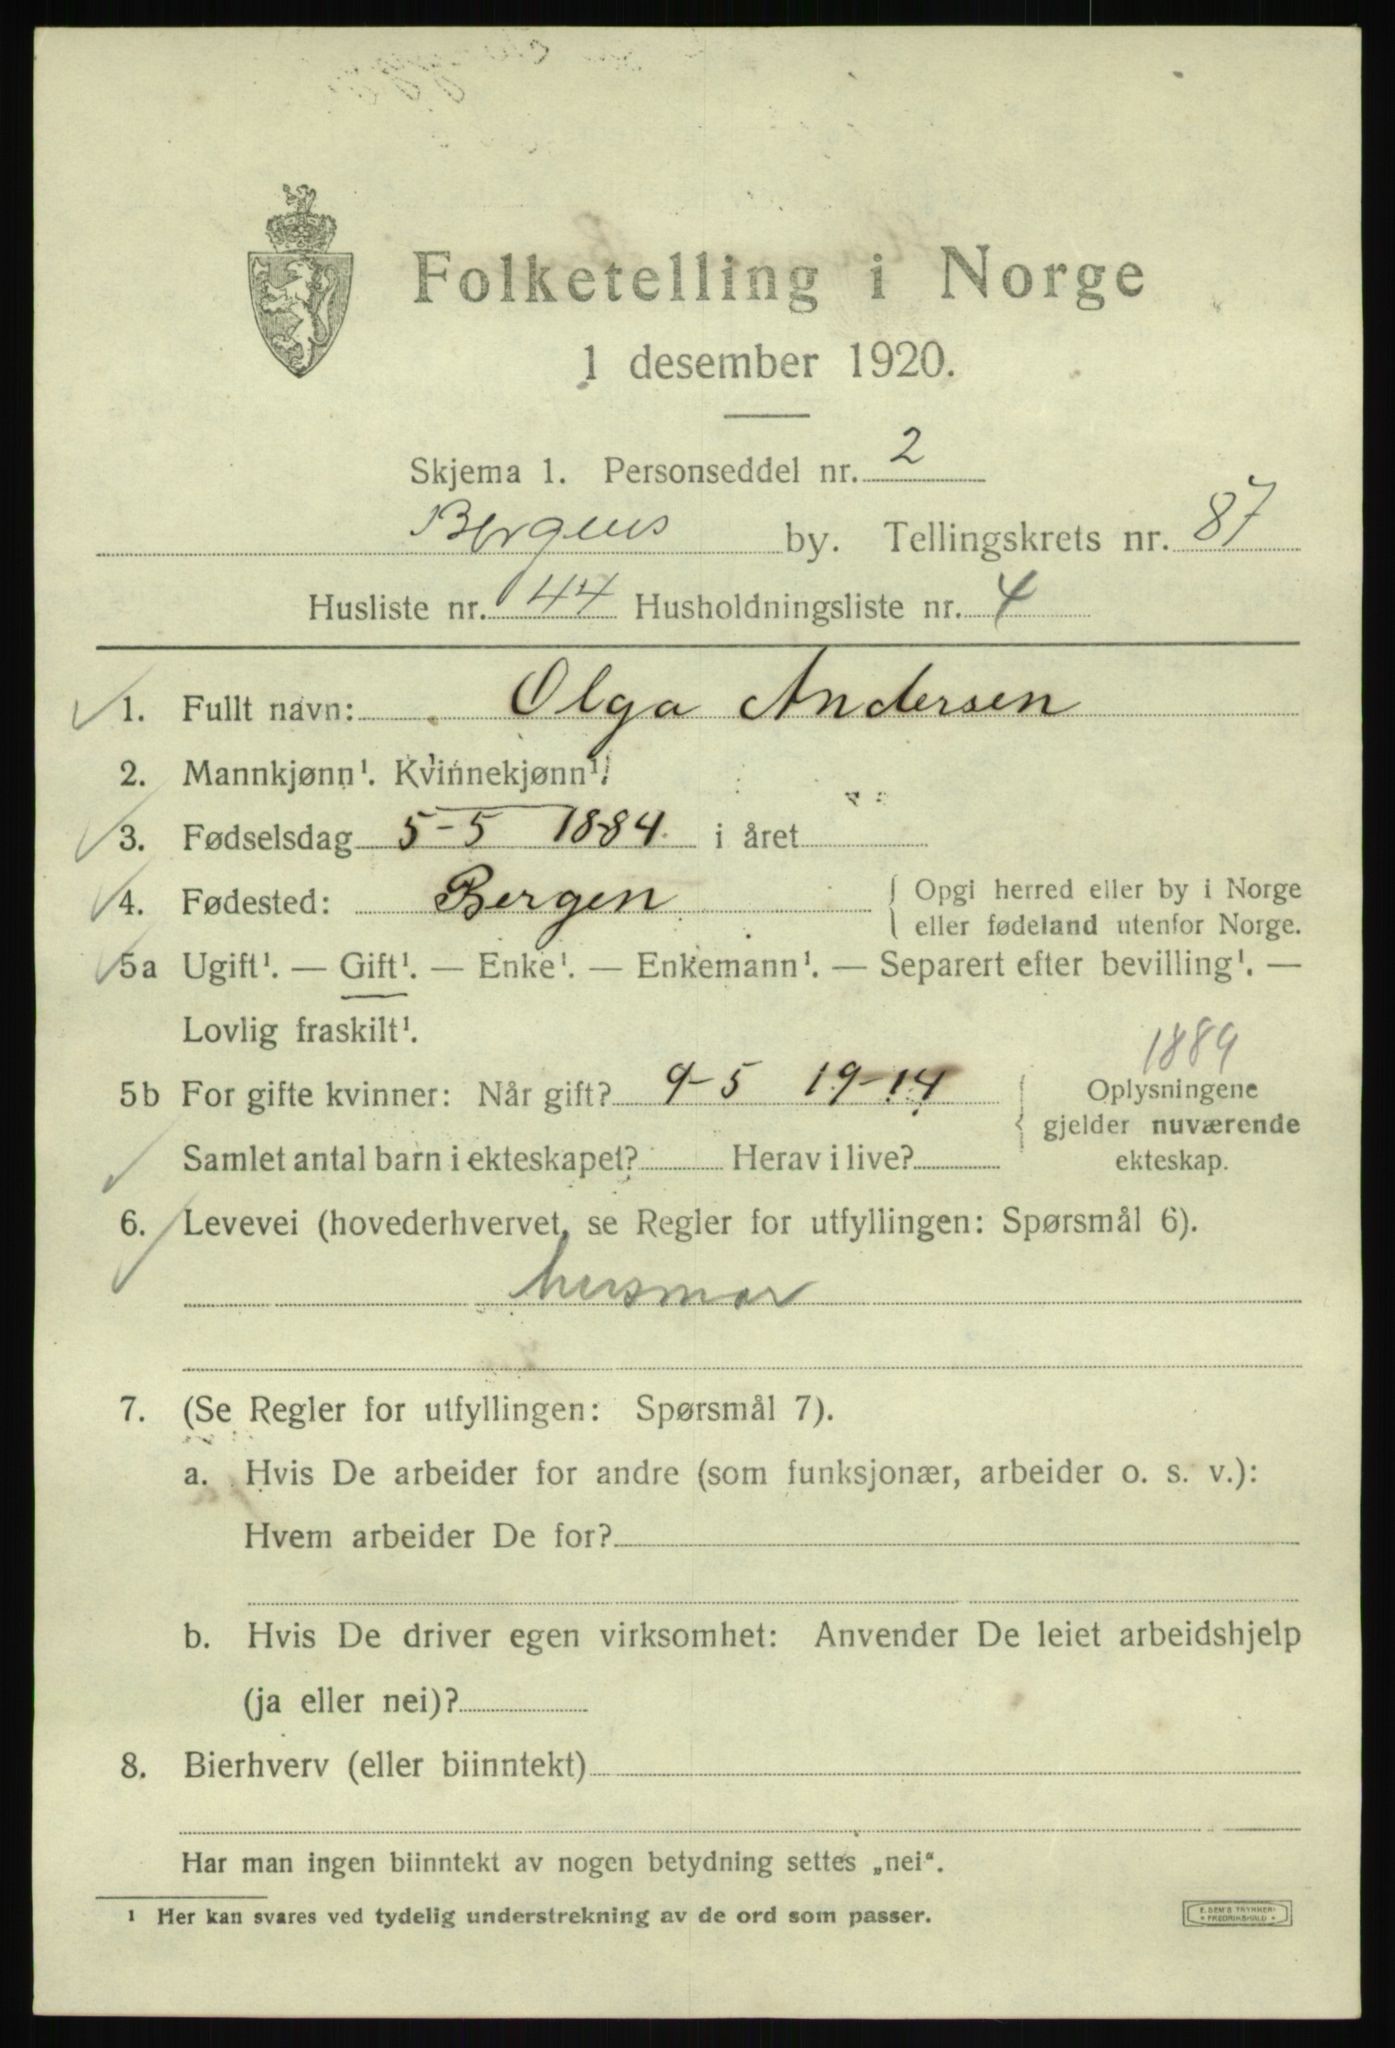 Folketelling i Norge
1 desember 1920.
Skjema 1. Personseddel nr. 2
Bergens by. Tellingskrets nr. 87
Husliste nr. 44 Husholdningsliste nr. 4
1. Fullt navn: Olga Andersen
2. Mannkjønn¹. Kvinnekjønn¹.
3. Fødselsdag 5-5 1884. i året
4. Fødested: Bergen { Opgi herred eller by i Norge
eller fødeland utenfor Norge.
5a Ugift¹. — Gift¹. — Enke¹. — Enkemann¹. — Separert efter bevilling¹. —
Lovlig fraskilt¹.
1889
5b For gifte kvinner: Når gift? 9-5 19-14 { Oplysningene
gjelder nuværende
Samlet antal barn i ekteskapet? Herav i live? ekteskap.
6. Levevei (hovederhvervet, se Regler for utfyllingen: Spørsmål 6).
husmor
7. (Se Regler for utfyllingen: Spørsmål 7).
a. Hvis De arbeider for andre (som funksjonær, arbeider o. s. v.):
Hvem arbeider De for?
b. Hvis De driver egen virksomhet: Anvender De leiet arbeidshjelp
(ja eller nei)?
8. Bierhverv (eller biinntekt)
Har man ingen biinntekt av nogen betydning settes „nei“.
¹ Her kan svares ved tydelig understrekning av de ord som passer.
E. SEM'S TRYKKERI
FREDRIKSHALD